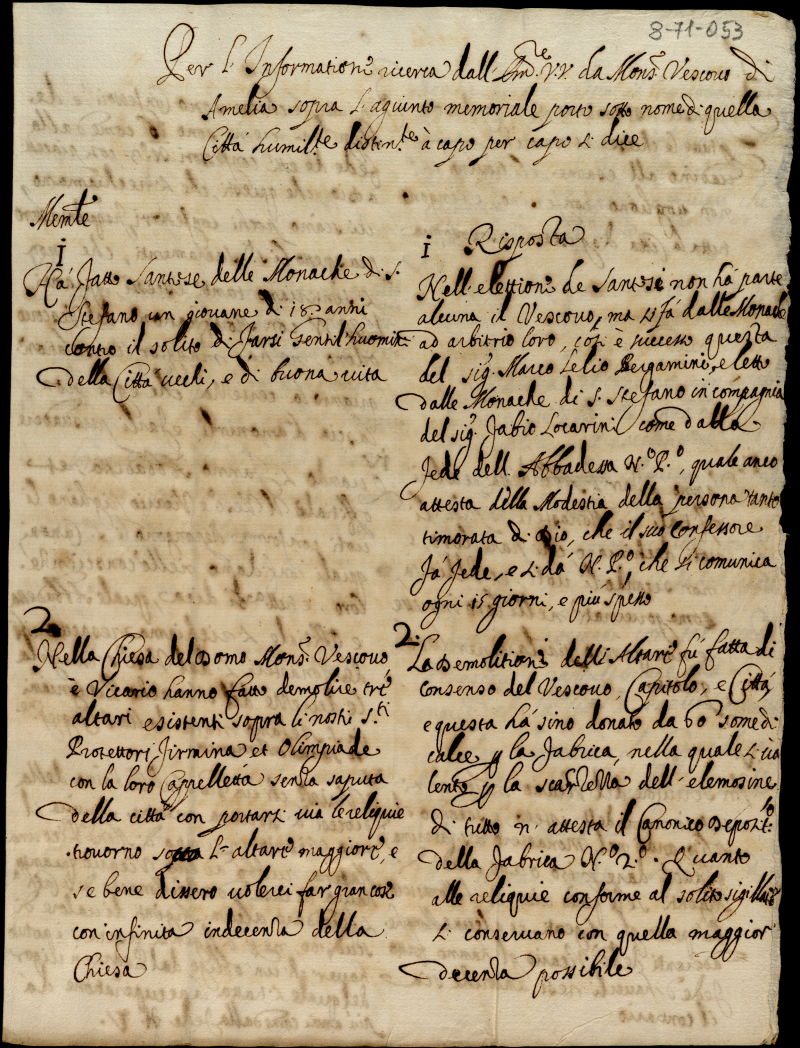 8-71-053
Per l'Informatione ricerca dall'Em.re VV da Mons.r Vescovo di
Amelia sopra l'agiunto memoriale porto sotto nome di quella
Città humil.te distin.te à capo per capo si dice
Mem.le
1
Ha fatto Santese delle Monache di S.
Stefano un giovane di 18 anni
contro il solito di farsi Gentil'huomini
della Città vechi, e di buona vita
2
Nella Chiesa del Domo Mons.r Vescovo
è Vicario hanno fatto demolire tre
altari esistenti sopra li nostri S.ti
Protettori Firmina et Olimpiade
con la loro Cappelletta senza saputa
della città con portarsi via le reliquie
trovorno sotto l'altare maggiore, e
se bene dissero volerci far gran cose
con infinita indecenza della
Chiesa
1 Risposta
Nell'elettione de Santesi non hà parte
alcuna il Vescovo, ma si fà dalle Monache
ad arbitrio loro, così è successo questa
del sig.r Marco Lelio Bergamini, eletto
dalle Monache di S. Stefano in compagnia
del sig.r Fabio Locarini come dalla
fede dell'Abbadessa N.o P.o, quale anco
attesta della Modestia della persona tanto
timorata di Dio, che il suo Confessore
fà fede, e si dà N. P.o, che si comunica
ogni 15 giorni, e più spesso
2.
La Demolitione delli Altari fù fatta di
consenso del Vescovo, Capitolo, e Città,
e questa hà sino donato da 60 some di
calce p la fabrica, nella quale si và
lente p la scarsezza dell'elemosine
di tutto n' attesta il Canonico Deposit.o
della fabrica N.o 2.o. Quanto
alle reliquie conforme al solito sigillate
si conservano con quella maggior
decenza possibile